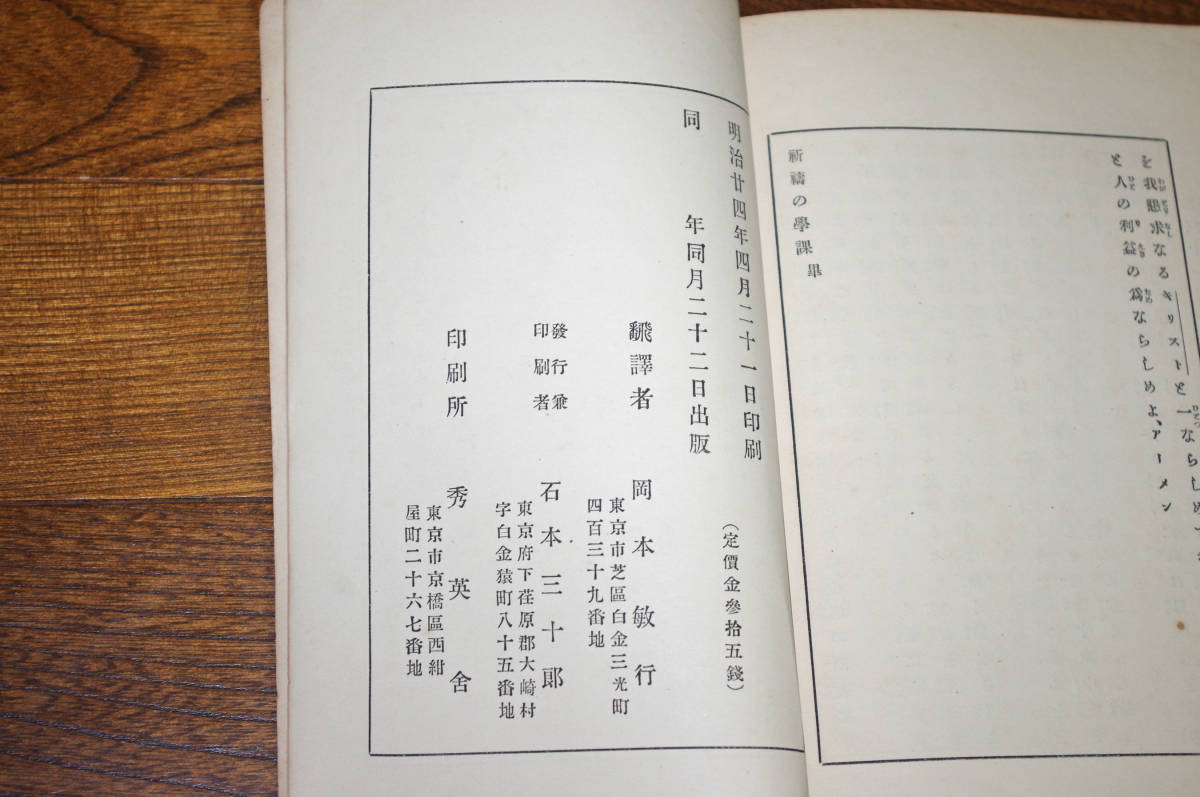 を我懇求なるキリストと一ならしめ
と人の利益の爲ならしめよ、アーメン
祈禱の學課畢
明治廿四年四月二十一日印刷
同年同月二十二日出版
(定價金參拾五錢)
飜譯者 岡本敏行
東京市芝區白金三光町
四百三十九番地
發行兼
印刷者
石本三十郎
東京府下荏原郡大崎村
字白金猿町八十五番地
印刷所 秀英舍
東京市京橋區西紺
屋町二十六七番地